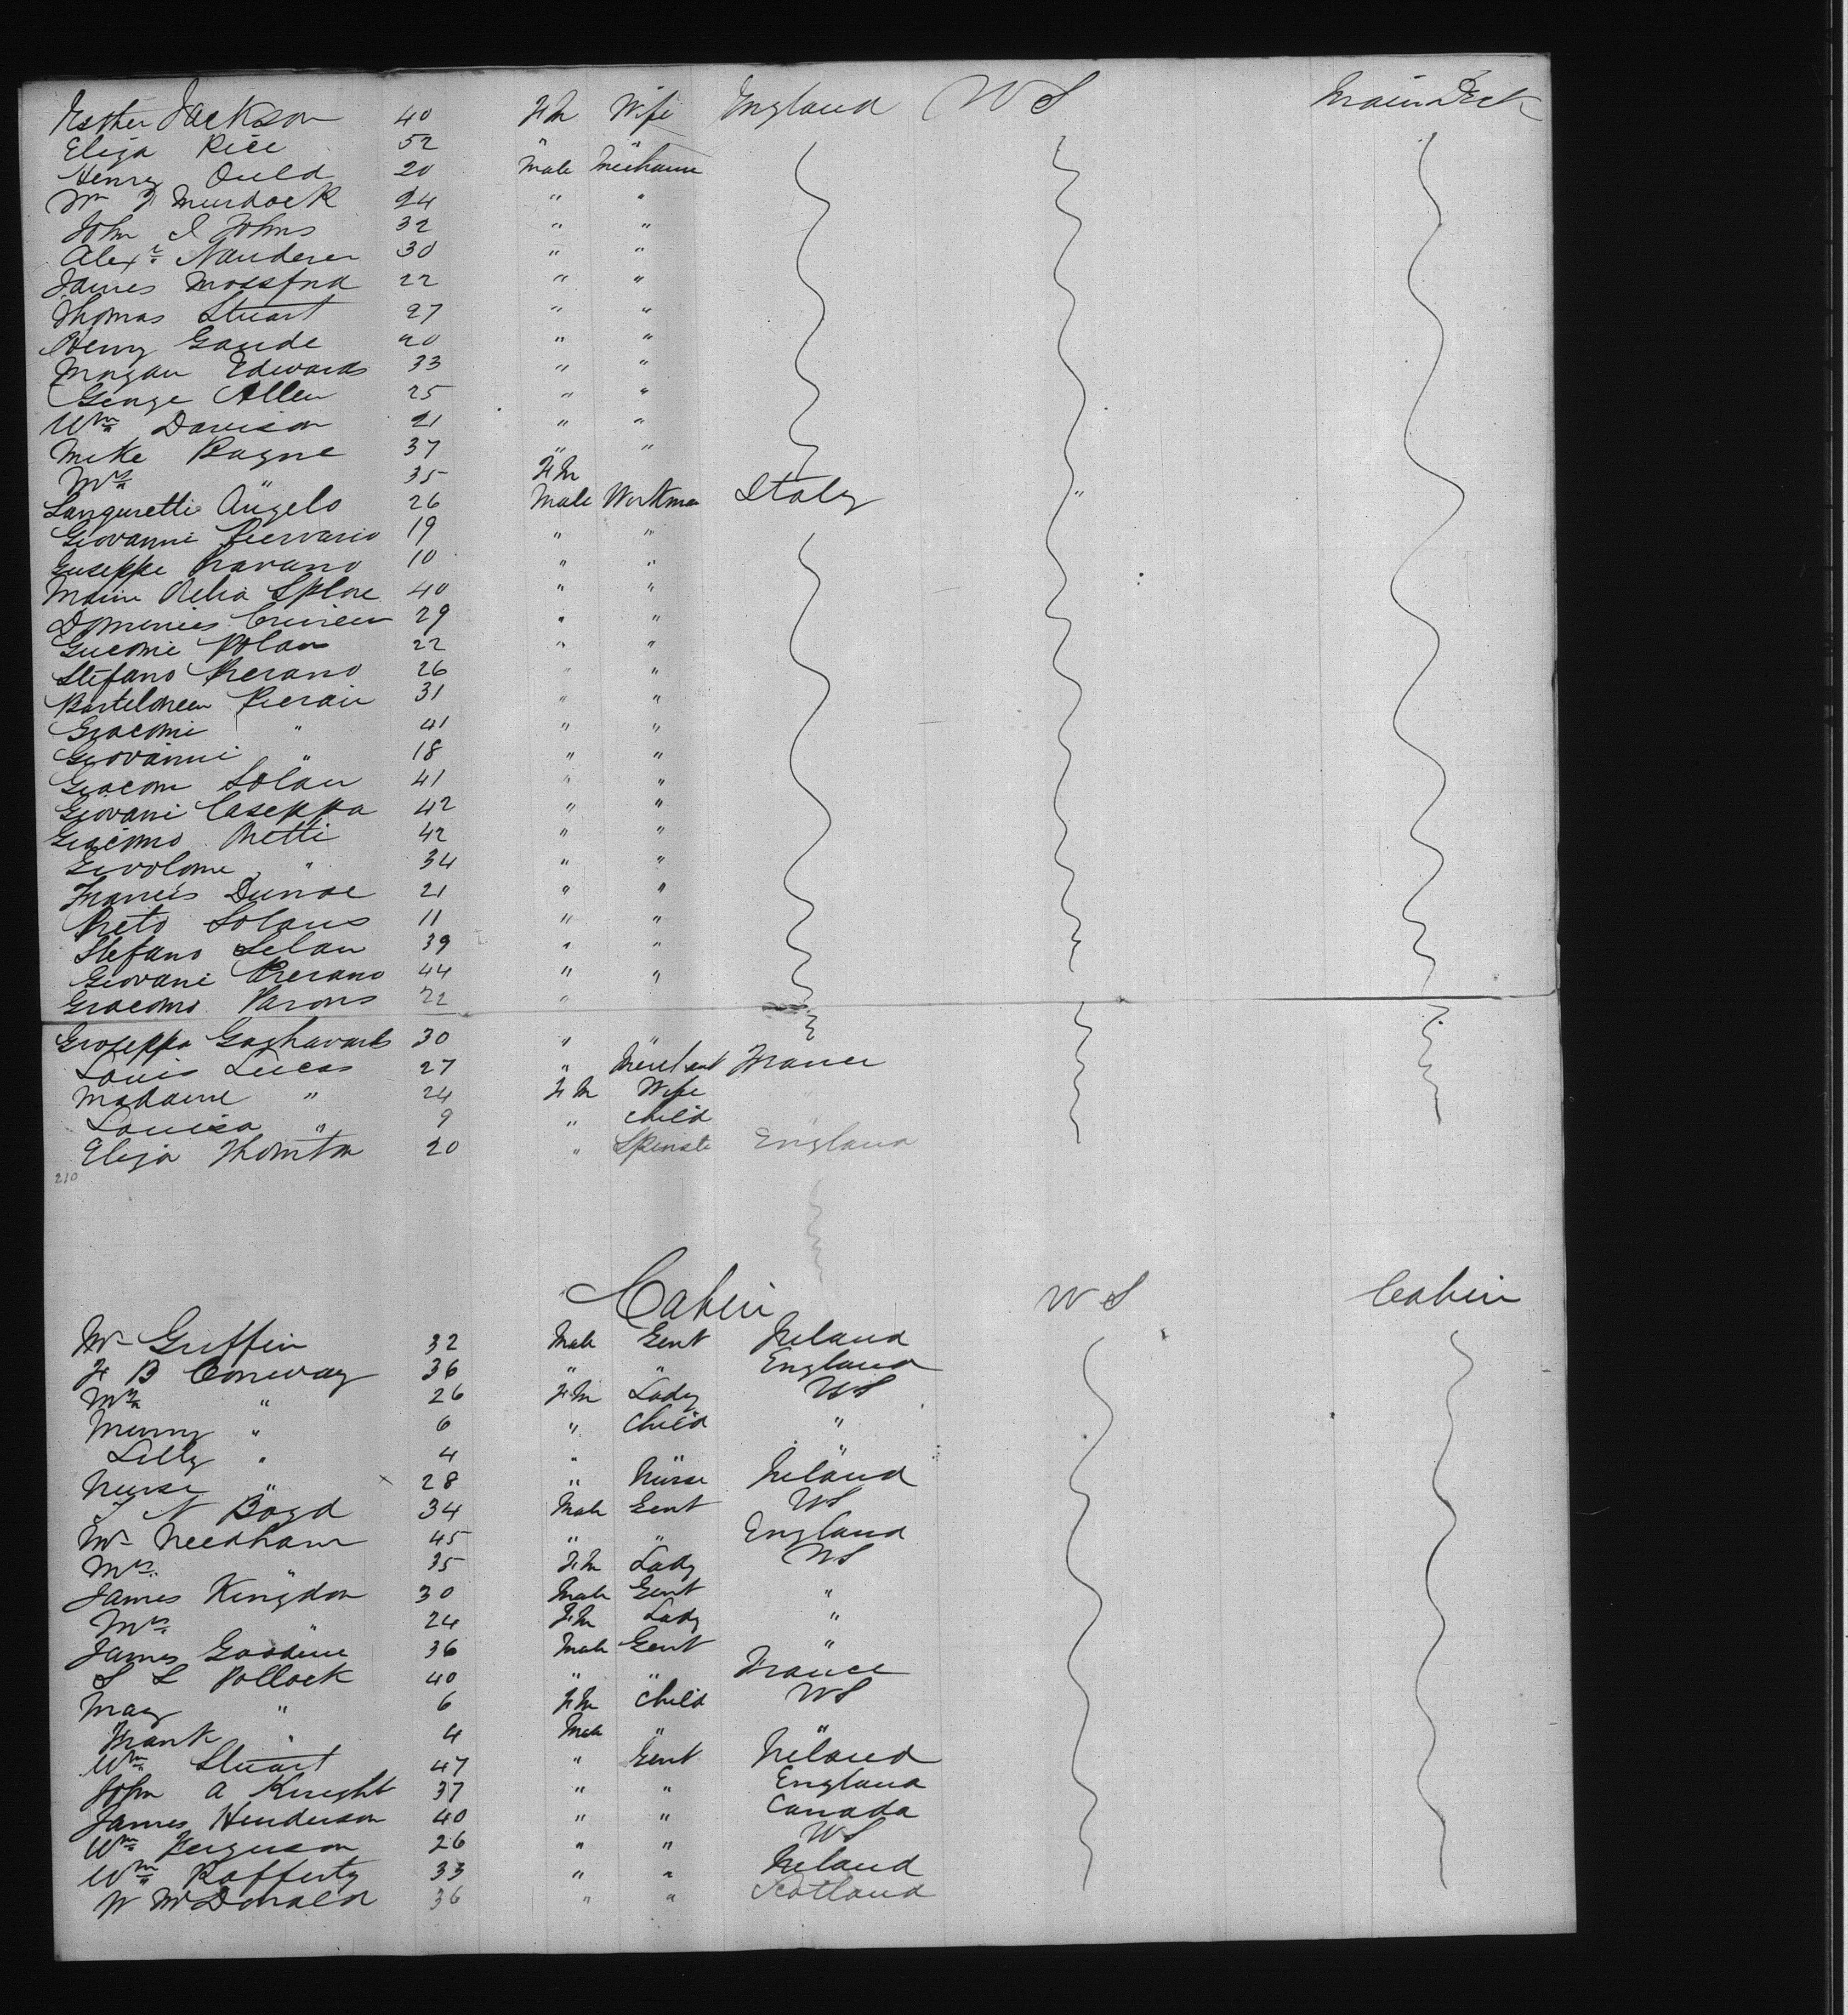 Esther Jackson 40 Fm Wife England U S Main Deck
Eliza Rice 52 "
Henry Ould 20 Male Mechanic
Wm F Murdock 24 " "
John I Johns 32 " "
Alexr Nauderer 30 " "
James Mossford 22 " "
Thomas Stuart 27 " "
Henry Gaude 20 " "
Morgan Edwards 33 " "
George Allen 25 " "
Wm Davison 21 " "
Mike Bagne 37 " "
Mrs " 35 Fm
Languretti Angelo 26 Male Workman Italy "
Giovanni 19 " "
Guseppe 10 " "
40 " "
29 " "
Polan 22 " "
Stefano Pierano 26 " "
31 " "
Giacomi " 41 " "
Giovanni " 18 " "
Giacom Solan 41 " "
Giovani Caseppa 42 " "
Giacomo Netti 42 " "
" 34 " "
Francis Dunoe 21 " "
Pieto Solaus 11 " "
Stefano Selan 39 " "
Giovani Pierano 44 " "
Giacomo Parons 22 "
Groseppa 30 " "
Louis Lucas 27 " Merchant France
Madame " 24 Fm Wife
Louisa " 9 " Child
Eliza Thornton 20 " Spinste England
210
Cabin U S Cabin
Mr Griffin 32 Male Gent Ireland
F B Conway 36 " " England
Mrs " 26 Fm Lady US
Minny " 6 " Child "
Lilly " 4 " " "
Nurse " 28 " Nurse Ireland
T N Boyd 34 Male Gent US
Mr Needham 45 " " England
Mrs " 35 Fm Lady US
James Kingdon 30 Male Gent "
Mrs " 24 Fm Lady "
James Goodine 36 Male Gent "
S L Pollock 40 " " France
May " 6 Fm Child US
Frank " 4 Male " "
Wm Stuart 47 " Gent Ireland
John A Knight 37 " " England
James Henderson 40 " " Canada
Wm Ferguson 26 " " US
Wm Rafferty 33 " " Ireland
W McDonald 36 " " Scotland